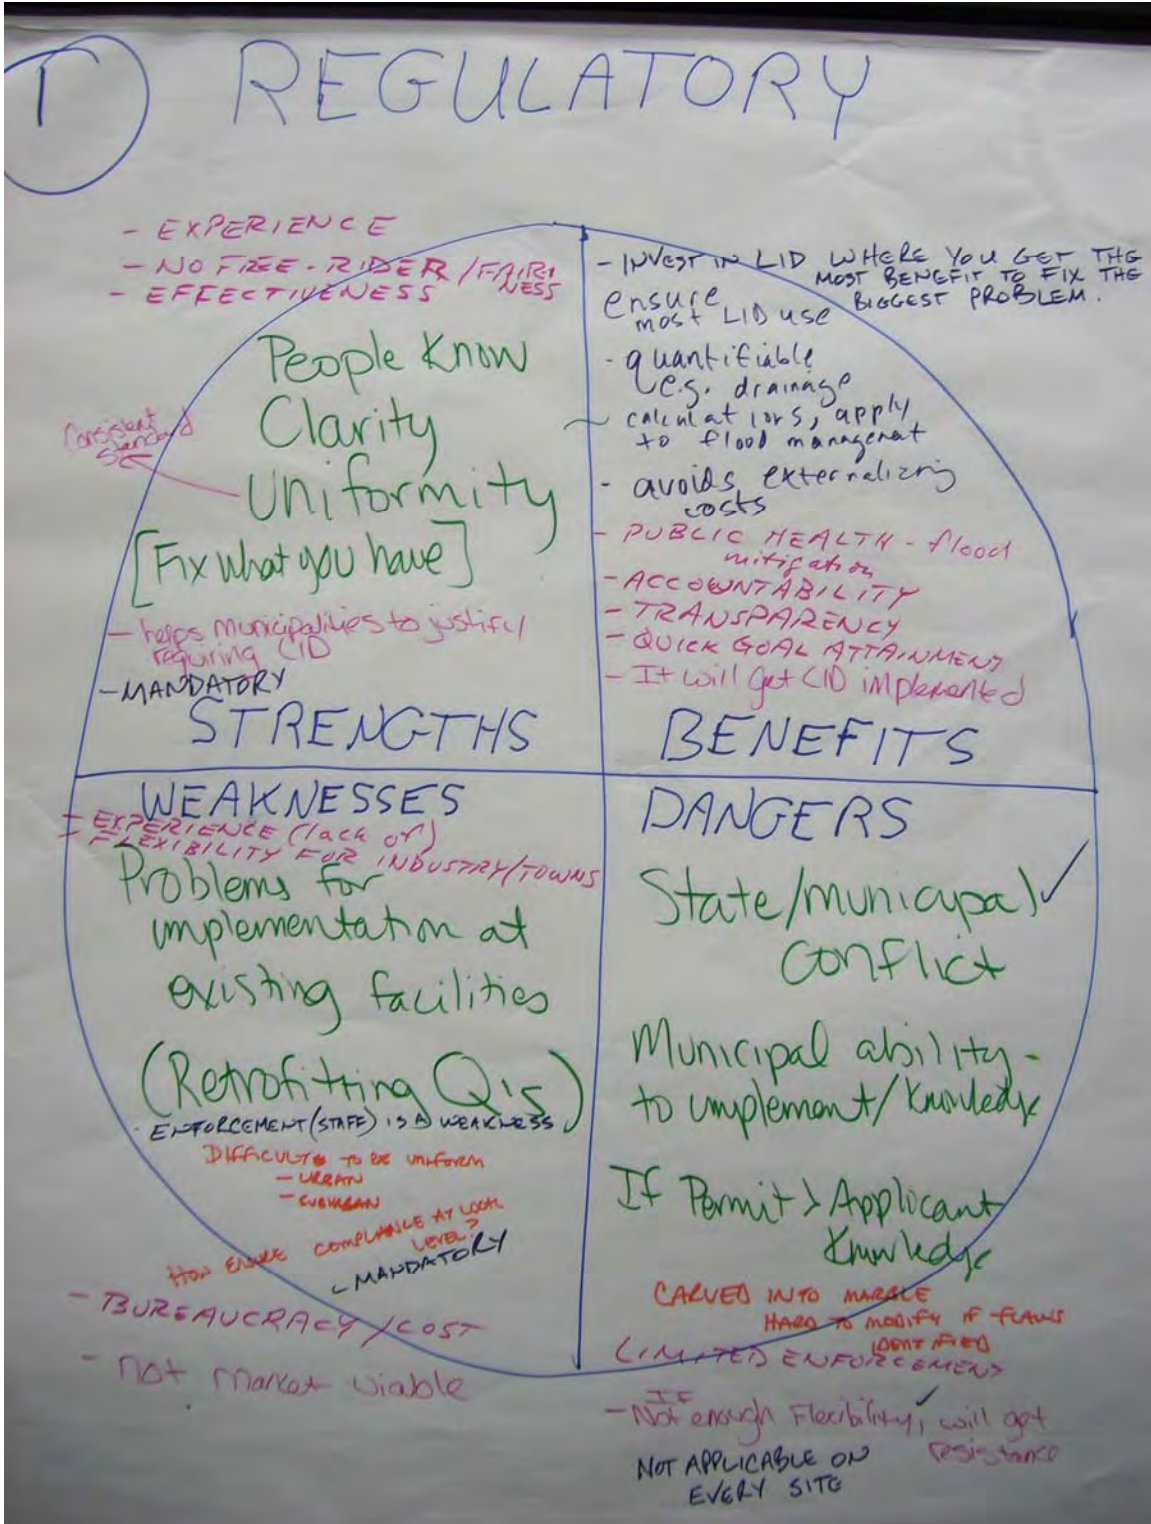 1
REGULATORY
- EXPERIENCE
- NO FREE-RIDER/FAIR-
NESS
- EFFECTIVENESS
People Know
Clarity
Consistent
standard
Uniformity
[Fix what you have]
- helps municipalities to justify
requiring LID
- MANDATORY
STRENGTHS
- INVEST IN LID WHERE YOU GET THE
MOST BENEFIT TO FIX THE
BIGGEST PROBLEM.
ensure
most LID use
- quantifiable
e.g. drainage
calculations, apply
to flood managemat
- avoids externalizing
costs
- PUBLIC HEALTH - flood
mitigation
- ACCOUNTABILITY
- TRANSPARENCY
- QUICK GOAL ATTAINMENT
- It will get LID implemented
BENEFITS
WEAKNESSES
- EXPERIENCE (lack of)
- FLEXIBILITY FOR INDUSTRY/TOWNS
Problems for
implementation at
existing facilities
(Retrofitting Q's)
· ENFORCEMENT (STAFF) IS A WEAKNESS
DIFFICULT TO BE UNIFORM
- URBAN
- SUBURBAN
HOW ENSURE COMPLIANCE AT LOCAL
LEVEL?
- MANDATORY
- BUREAUCRACY/COST
- not market viable
DANGERS
State/municipal ✓
Conflict
Municipal ability -
to implement/knowledge
If Permit > Applicant
Knowledge
CARVED INTO MARBLE
HARD TO MODIFY IF FLAWS
IDENTIFIED
LIMITED ENFORCEMENT
IF
- Not enough Flexibility, ✓ will get
resistance
NOT APPLICABLE ON
EVERY SITE